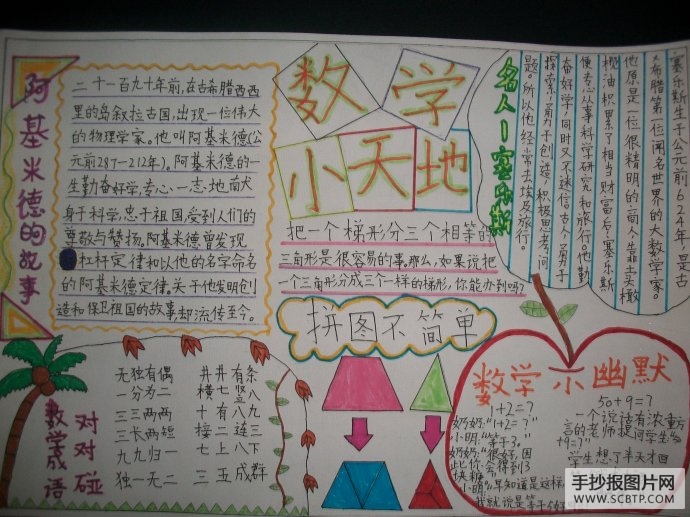 阿基米德的故事
二千一百九十年前,在古希腊西西
里的岛叙拉古国,出现一位伟大
的物理学家。他叫阿基米德(公
元前287-212年)。阿基米德的一
生勤奋好学,专心一志,地献
身于科学,忠于祖国,受到人们的
尊敬与赞扬。阿基米德曾发现
杠杆定律和以他的名字命名
的阿基米德定律。关于他发明创
造和保卫祖国的故事却流传至今。
数学
小天地
把一个梯形分三个相等的
三角形是很容易的事,那么,如果说把
一个三角形分成三个一样的梯形,你能办到吗?
拼图不简单
名人—塞乐斯
塞乐斯生于公元前624年,是古
希腊第一位闻名世界的大数学家。
他原是一位很精明的商人,靠卖橄
榄油积累了相当财富后,塞乐斯
便专心从事科学研究和旅行。他勤
奋好学,同时又不迷信古人,勇于
探索,勇于创造,积极思考问
题。所以他经常去埃及旅行。
数学成语
对对碰
无独有偶 井井有条
一分为二 横七竖八
三三两两 十有八九
三长两短 接二连三
九九归一 七上八下
独一无二 三五成群
数学小幽默
1+2=?
奶奶:"1+2=?"
小明:"等于3。"
奶奶:"很好,因
此你会得到3
块糖。"
小明:"早知道是这样,
我就说是等于5好了!"
50+9=?
一个说话有浓重方
言的老师提问学生:"50
+9=?"
学生想了半天才回
手抄报图片网
WWW.SCBTP.COM